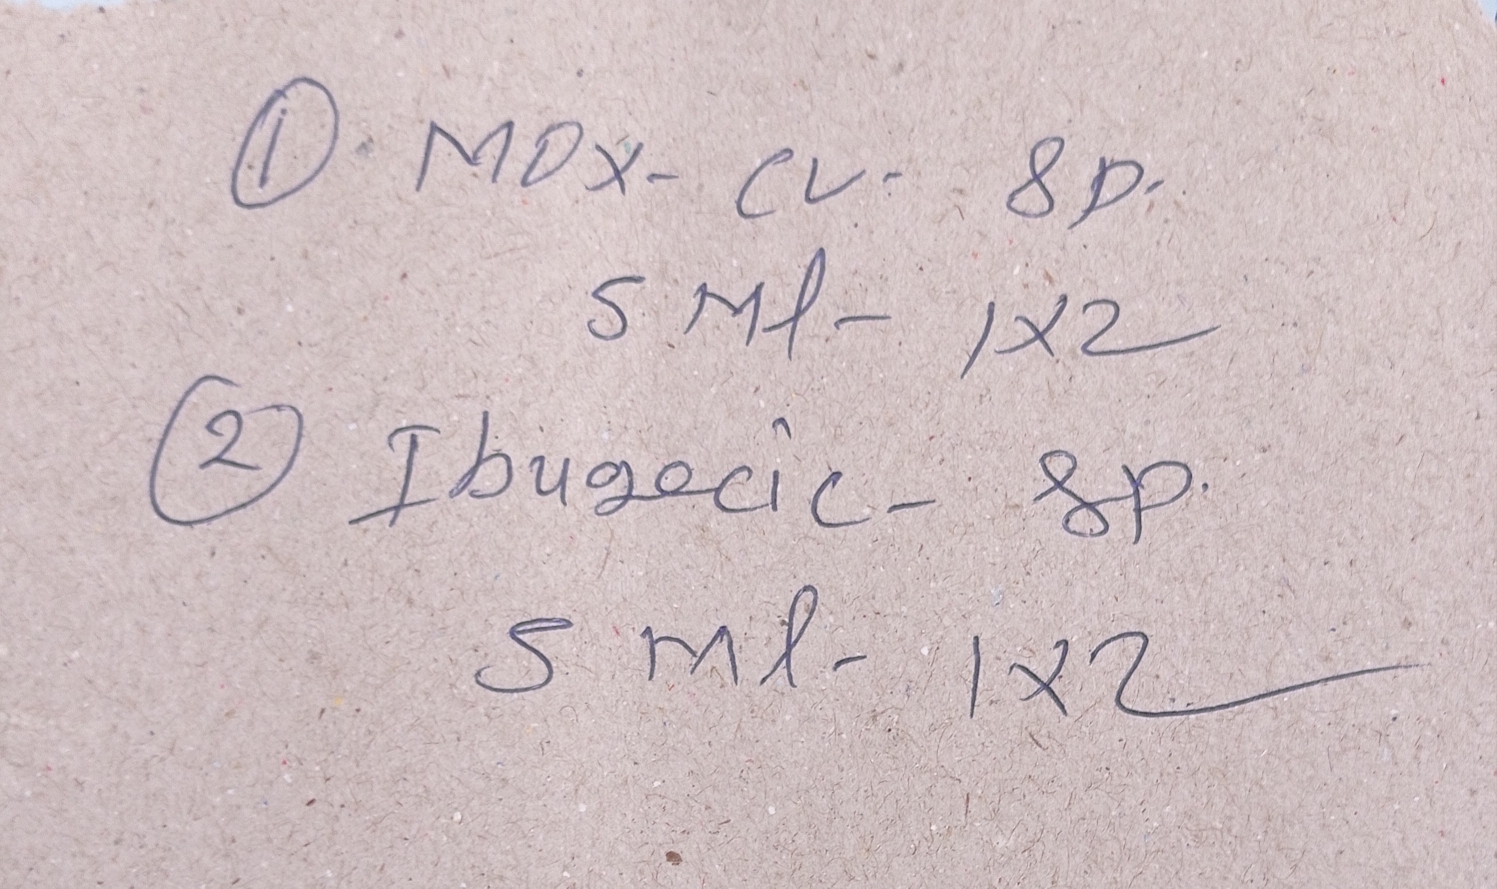 ① MOX- CV- SP.
5 Ml- 1x2
② Ibugecic- SP.
5 Ml- 1x2